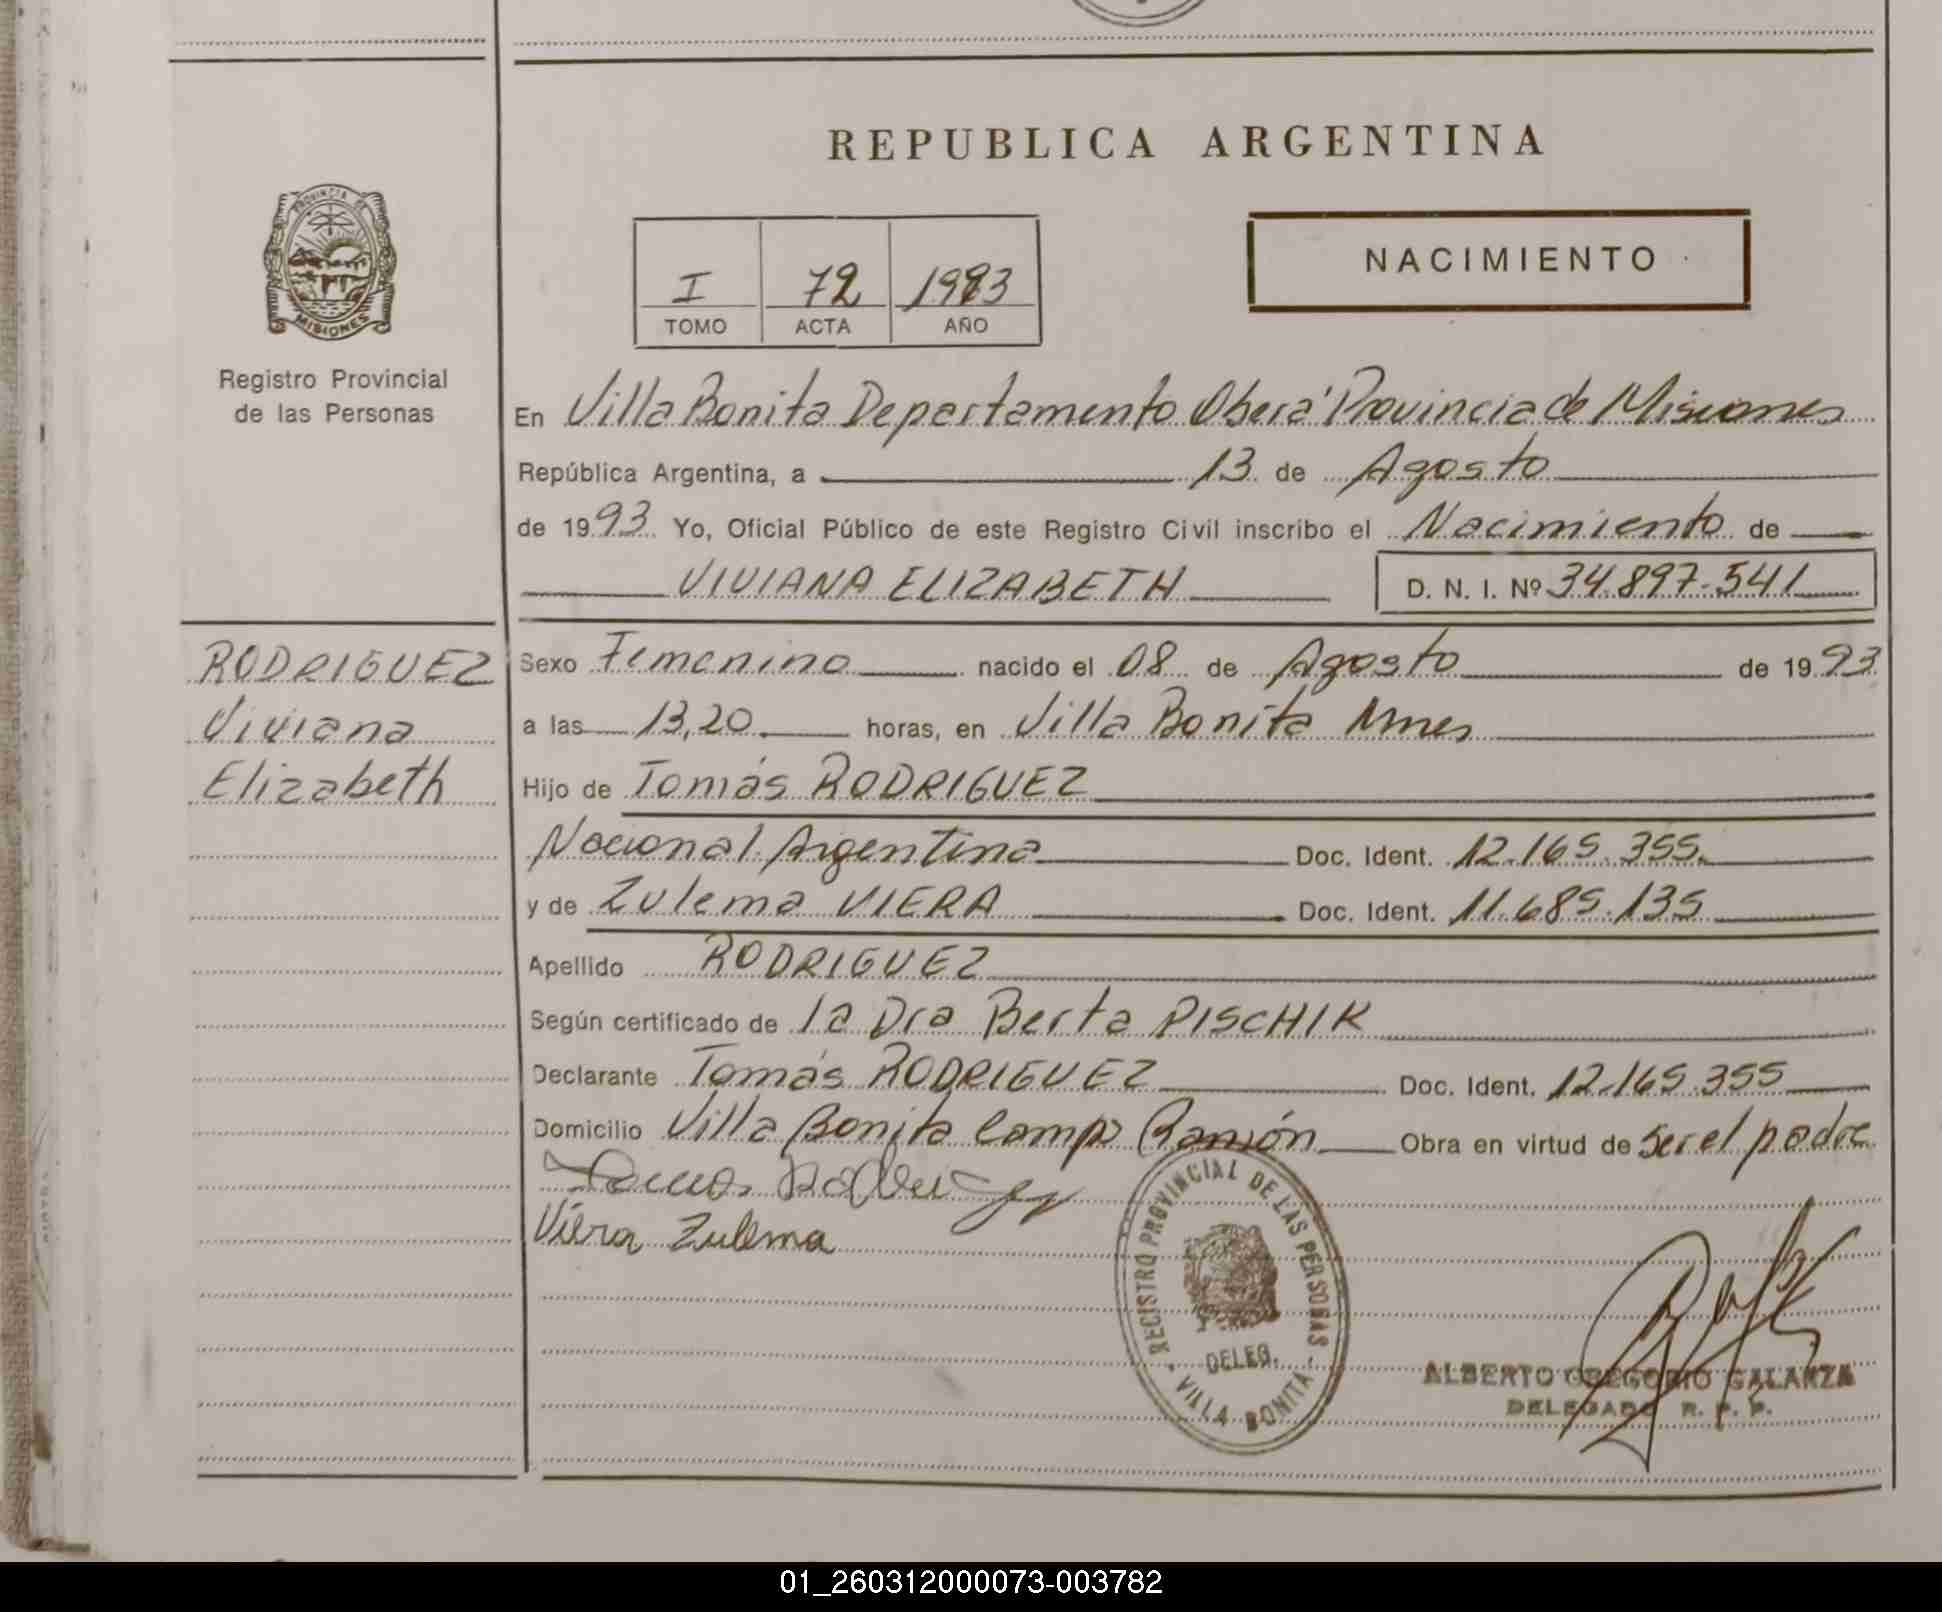 REPUBLICA ARGENTINA
PROVINCIA DE
MISIONES
Registro Provincial
de las Personas
I 72 1993
TOMO ACTA AÑO
NACIMIENTO
En Villa Bonita Departamento Oberá Provincia de Misiones
República Argentina, a 13 de Agosto
de 1993 Yo, Oficial Público de este Registro Civil inscribo el Nacimiento de
VIVIANA ELIZABETH D. N. I. Nº 34.897.541
RODRIGUEZ
Viviana
Elizabeth
Sexo Femenino nacido el 08 de Agosto de 1993
a las 13,20 horas, en Villa Bonita Mnes
Hijo de Tomás RODRIGUEZ
Nacional Argentina Doc. Ident. 12.165.355.
y de Zulema VIERA Doc. Ident. 11.685.135
Apellido RODRIGUEZ
Según certificado de la Dra Berta PISCHIK
Declarante Tomás RODRIGUEZ Doc. Ident. 12.165.355
Domicilio Villa Bonita Campo Ramón Obra en virtud de Ser el padre
Viera Zulema
REGISTRO PROVINCIAL DE LAS PERSONAS
DELEG.
VILLA BONITA
ALBERTO GREGORIO GALARZA
DELEGADO R. P. P.
01_260312000073-003782